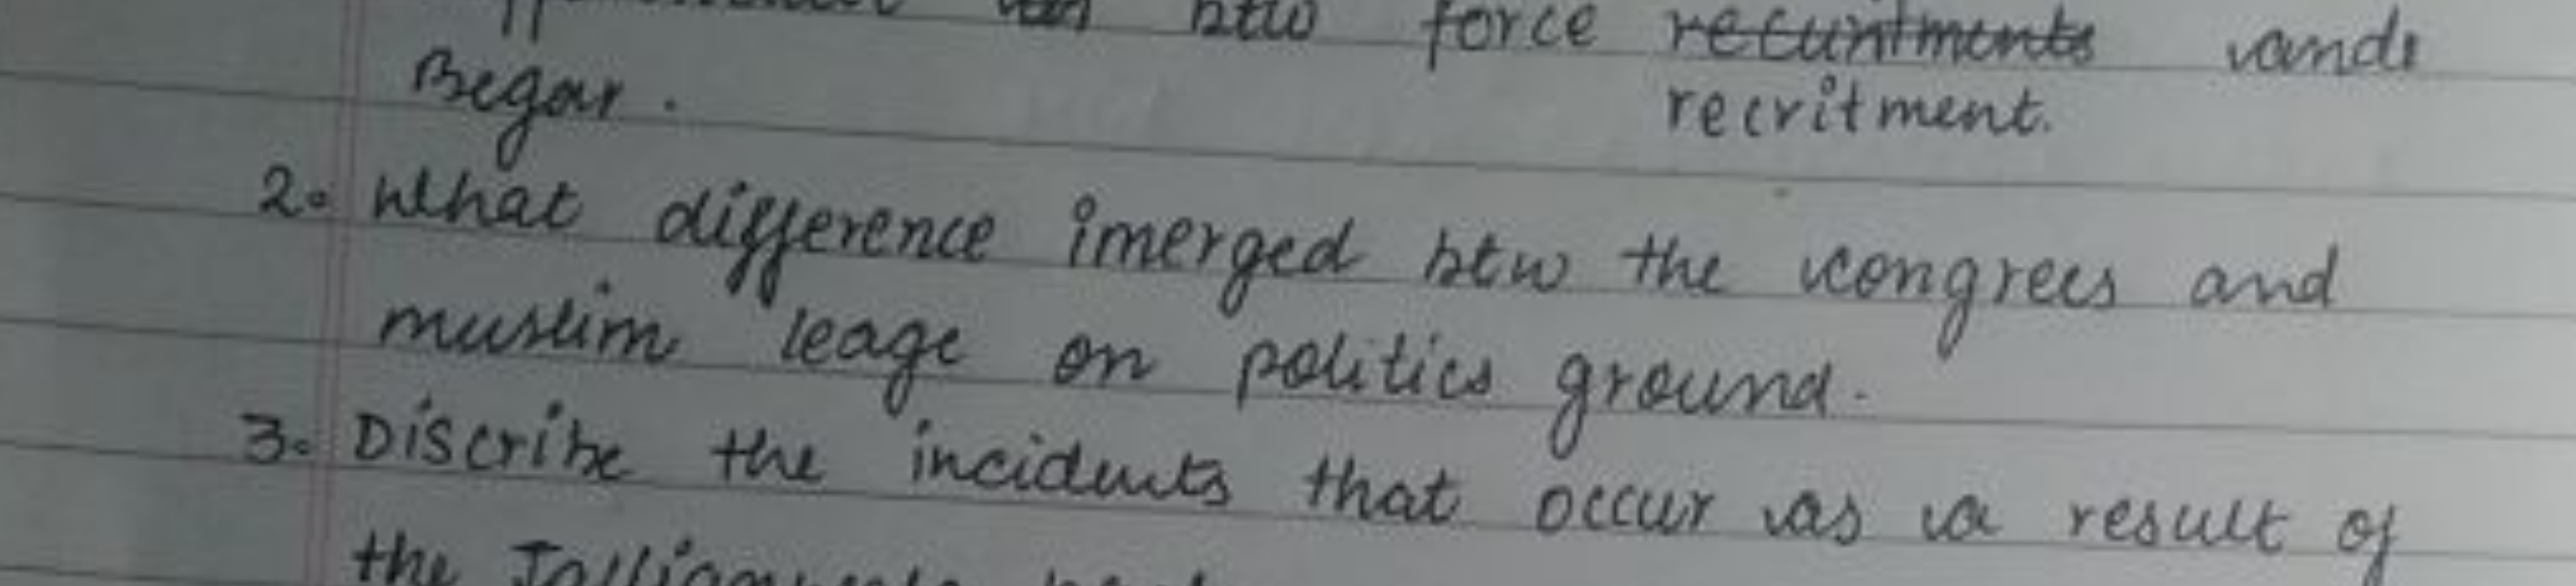 btw force recuintments and
Begar. recritment.
2. What difference imerged btw the congrees and
muslim leage on politics ground.
3. Discribe the incidents that occur as a result of
the